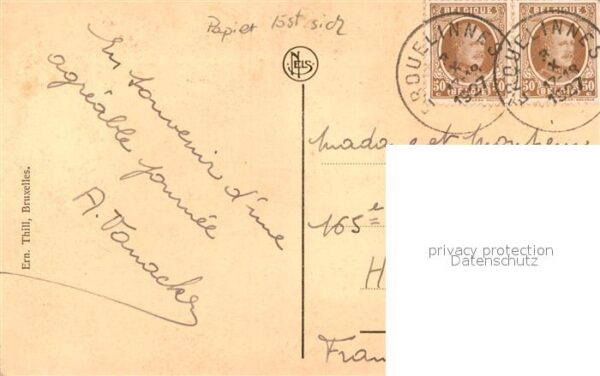 Papier löst sich
En souvenir d'une
agréable journée
A. Vanacker
Ern. Thill, Bruxelles.
NELS
BELGIQUE
50 50
BELGIE
BELGIQUE
50 50
BELGIE
ERQUELINNES
1927
ERQUELINNES
1927
Madame et Monsieur
165e
H
Fran
privacy protection
Datenschutz